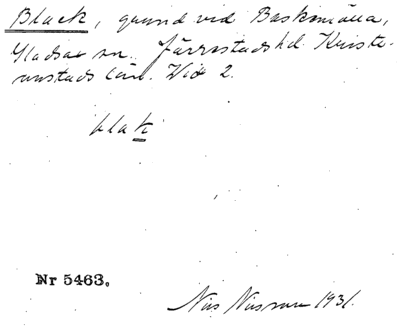 Black, grund vid Baskemölla,
Gladsax sn. Järrestads hd. Kristi-
anstads län. Vid 2.
blak
Nr 5463.
Nils Nilsson 1931.